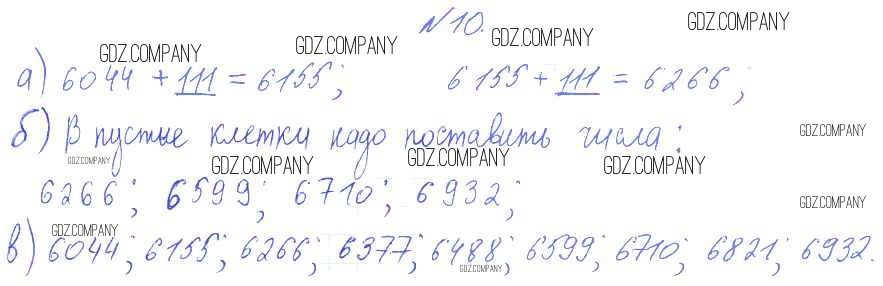 №10.
а) 6044 + 111 = 6155; 6155 + 111 = 6266;
б) В пустые клетки надо поставить числа:
6266; 6599; 6710; 6932;
в) 6044; 6155; 6266; 6377; 6488; 6599; 6710; 6821; 6932.
GDZ.COMPANY
GDZ.COMPANY
GDZ.COMPANY
GDZ.COMPANY
GDZ.COMPANY
GDZ.COMPANY
GDZ.COMPANY
GDZ.COMPANY
GDZ.COMPANY
GDZ.COMPANY
GDZ.COMPANY
GDZ.COMPANY